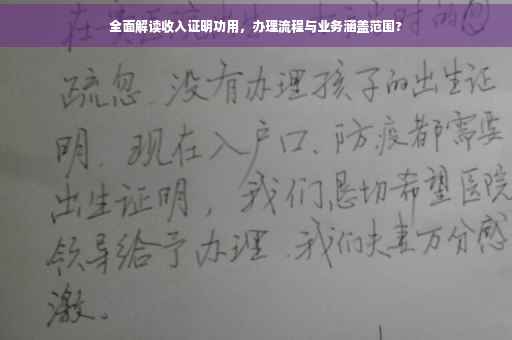 全面解读收入证明功用，办理流程与业务涵盖范围?
疏忽、没有办理孩子的出生证
明、现在入户口、防疫都需要
出生证明，我们恳切希望医院
领导给予办理、我们夫妻万分感
激。